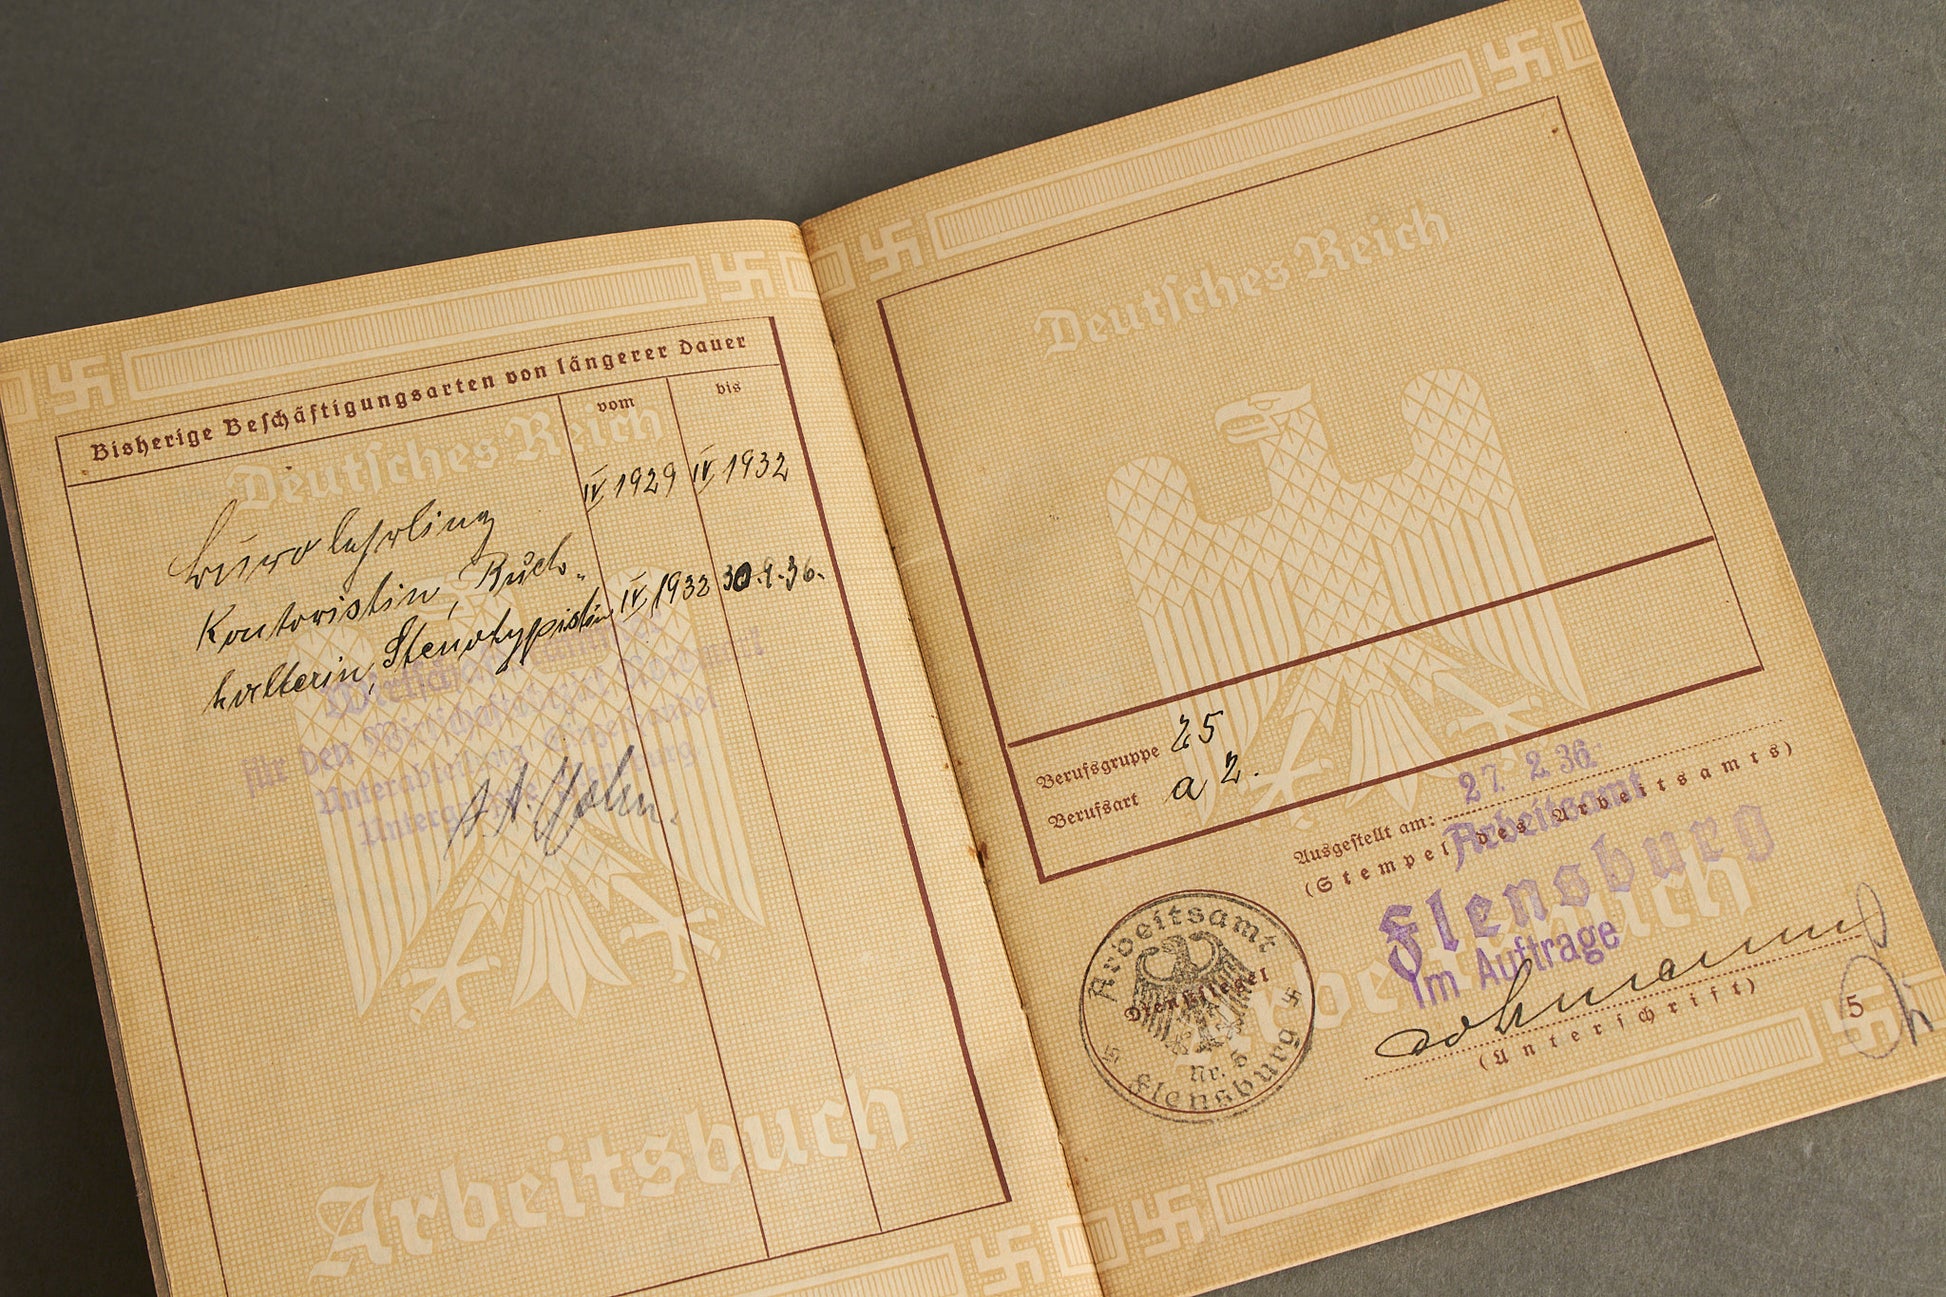 Bisherige Beschäftigungsarten von längerer Dauer
vom bis
Deutsches Reich
Bürolehrling IV 1929 IV 1932
Kontoristin, Buch-
halterin, Stenotypistin IV 1932 30.9.36.
für den
Unterabteilung Einzelhandel
Arbeitsbuch
Deutsches Reich
Berufsgruppe 25
Berufsart a 2.
Ausgestellt am: 27. 2. 36.
(Stempel des Arbeitsamts)
Arbeitsamt
Flensburg
Im Auftrage
(Unterschrift)
Arbeitsamt
Dienstsiegel
Nr. 5
Flensburg
Arbeitsbuch
5